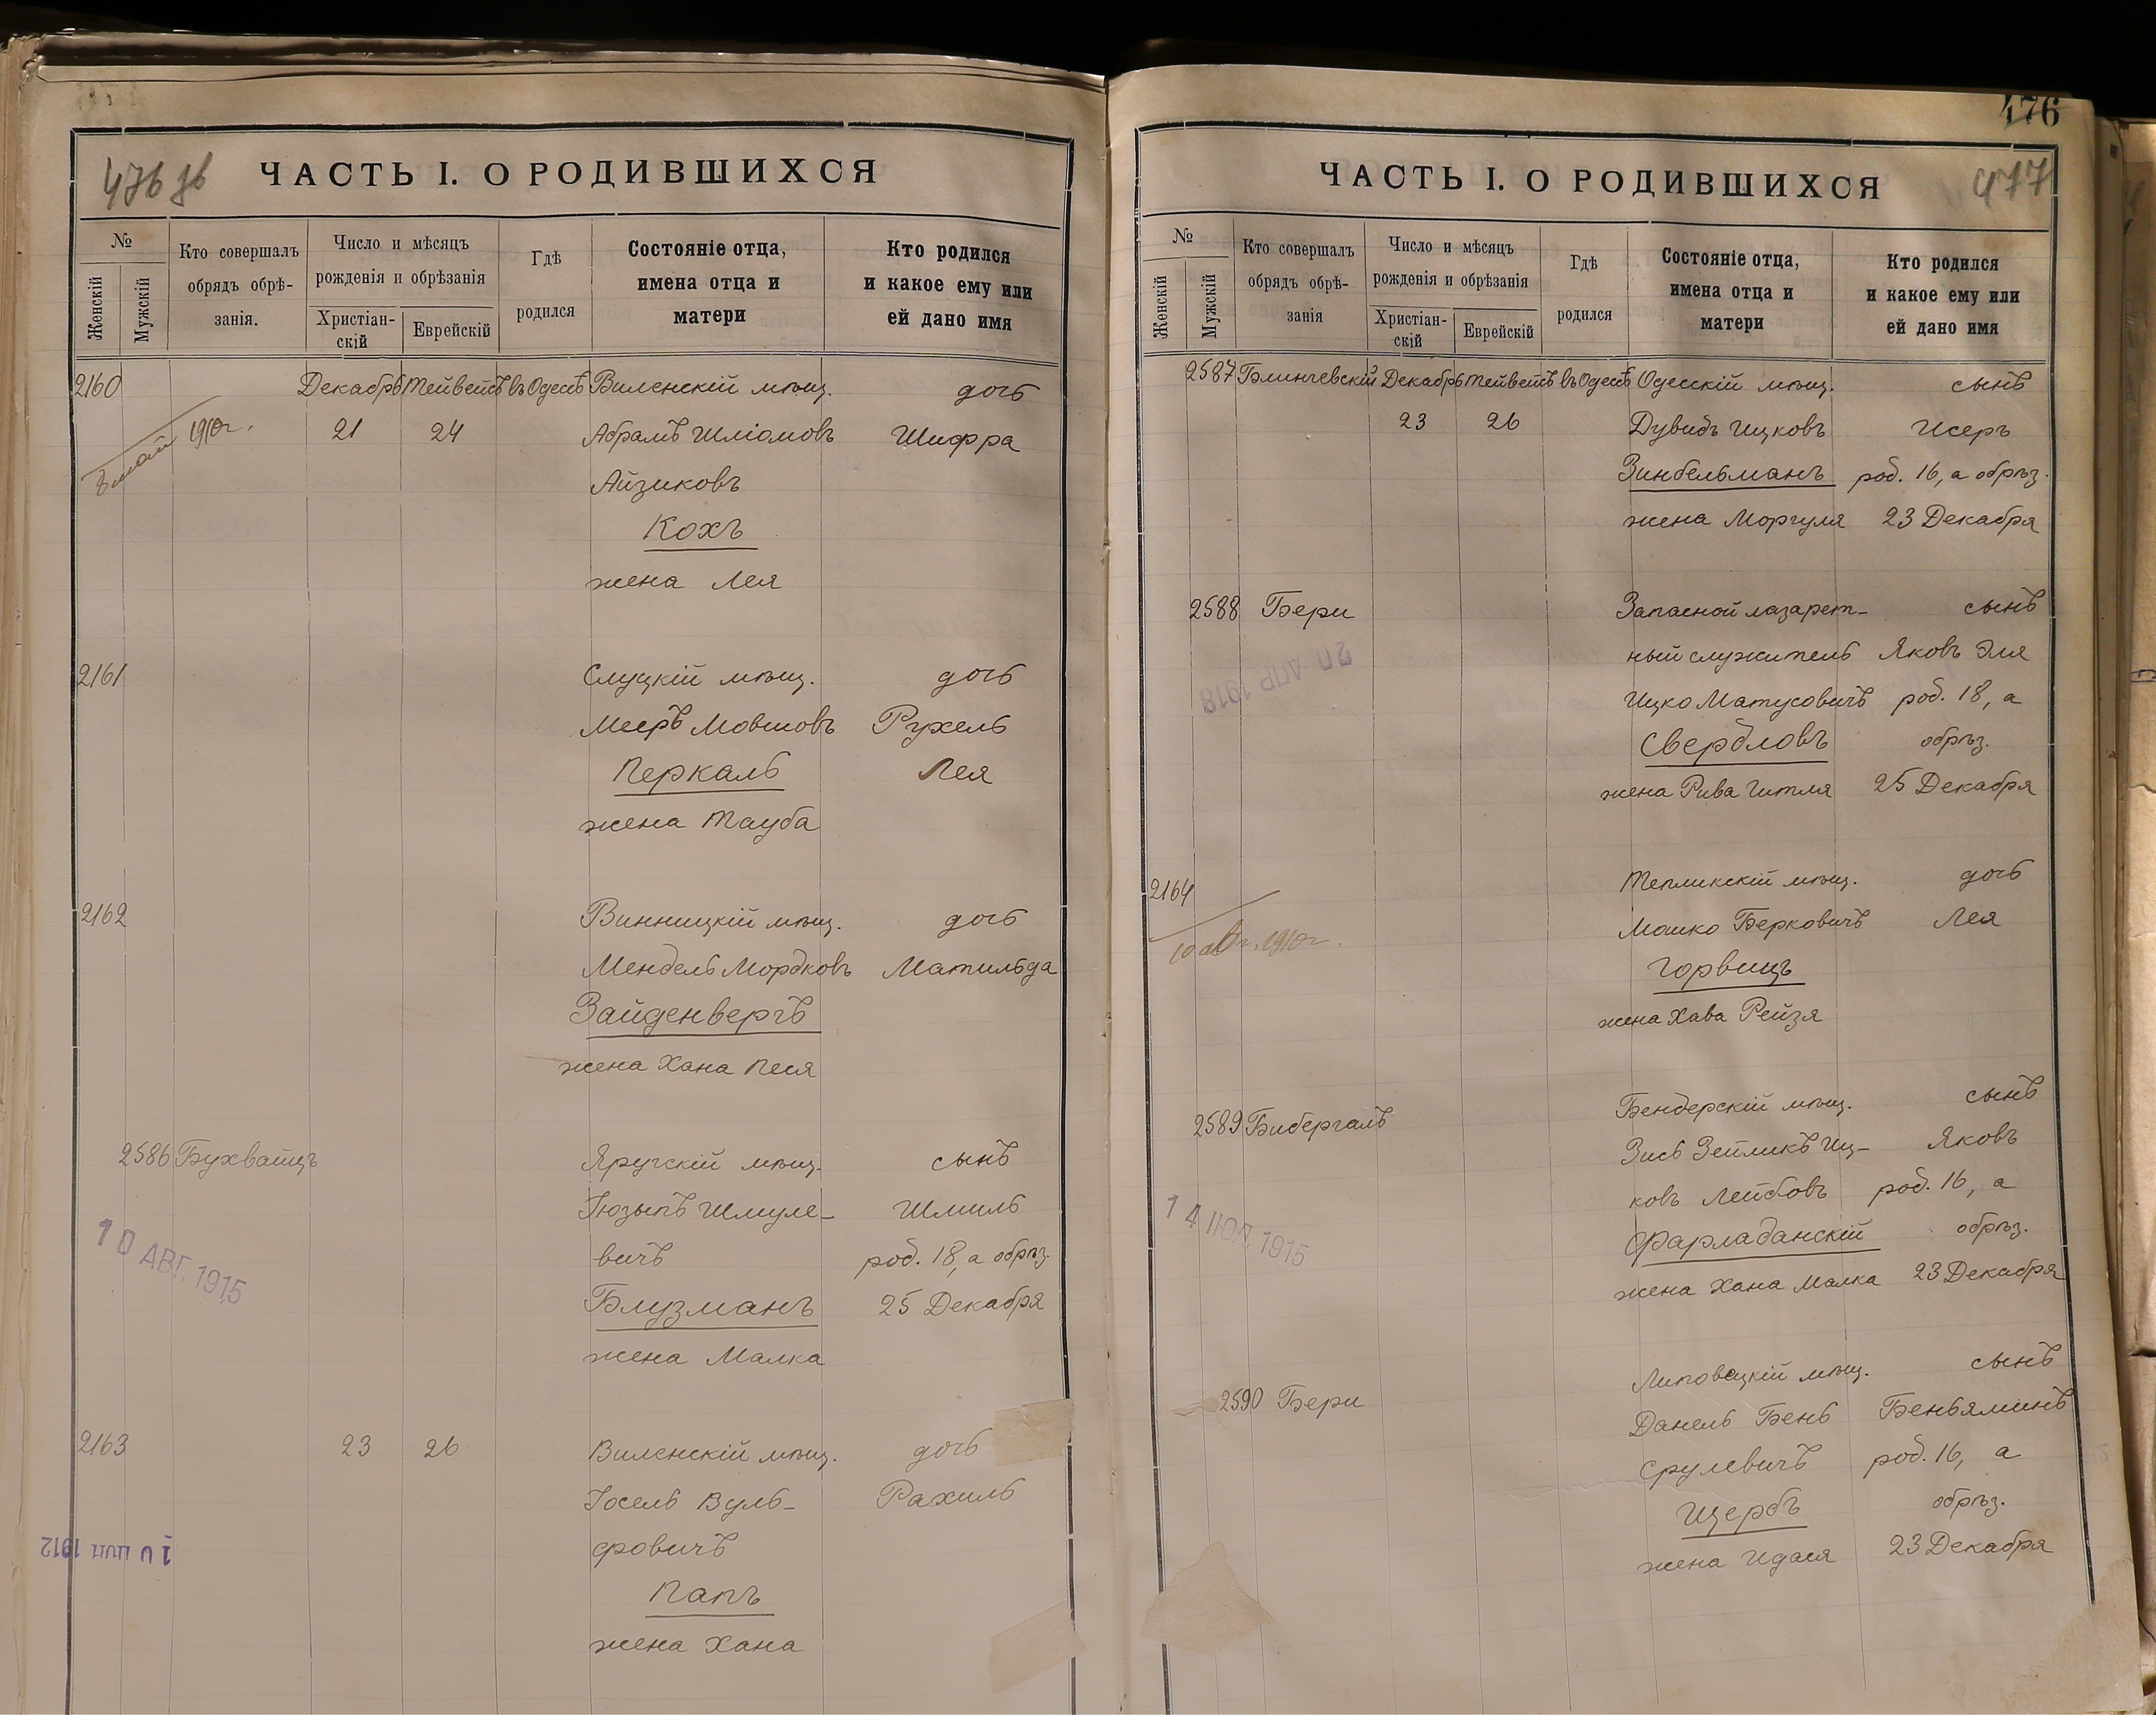 476 зв
ЧАСТЬ I. О РОДИВШИХСЯ
№
Женскій
Мужскій
Кто совершалъ
обрядъ обрѣ-
занія.
Число и мѣсяцъ
рожденія и обрѣзанія
Христіан-
скій
Еврейскій
Гдѣ
родился
Состояніе отца,
имена отца и
матери
Кто родился
и какое ему или
ей дано имя
2160 Декабрь Тейветъ въ Одессѣ Виленскій мѣщ. дочь
1910г. 21 24 Абрамъ Шліомовъ Шифра
Айзиковъ
Кохъ
жена Лея
2161 Слуцкій мѣщ. дочь
Мееръ Мовшовъ Рухель
Перкаль Лея
жена Тауба
2162 Винницкій мѣщ. дочь
Мендель Мордковъ Матильда
Зайденвергъ
жена Хана Песя
2586 Бухвайцъ Яругскій мѣщ. сынъ
Іюзыпъ Шмуле- Шмиль
вичъ род. 18, а обрѣз.
10 АВГ. 1915
Блузманъ 25 Декабря
жена Малка
2163 23 26 Виленскій мѣщ. дочь
Іосель Вуль- Рахиль
фовичъ
10 1912
Папъ
жена Хана
476
477
ЧАСТЬ I. О РОДИВШИХСЯ
№
Женскій
Мужскій
Кто совершалъ
обрядъ обрѣ-
занія
Число и мѣсяцъ
рожденія и обрѣзанія
Христіан-
скій
Еврейскій
Гдѣ
родился
Состояніе отца,
имена отца и
матери
Кто родился
и какое ему или
ей дано имя
2587 Блинчевскій Декабрь Тейветъ въ Одессѣ Одесскій мѣщ. сынъ
23 26 Дувидъ Ицковъ Исеръ
Зинбельманъ род. 16, а обрѣз.
жена Моргуля 23 Декабря
2588 Бери Запасной лазарет- сынъ
ный служитель Яковъ Эля
20 АПР 1918
Ицко Матусовичъ род. 18, а
Свердловъ обрѣз.
жена Рива Гитля 25 Декабря
2164 Тепликскій мѣщ. дочь
10 авг. 1910г. Мошко Берковичъ Лея
Горвицъ
жена Хава Рейзя
2589 Бибергалъ Бендерскій мѣщ. сынъ
Зись Зейликъ Иц- Яковъ
ковъ Лейбовъ род. 16, а
14 ІЮЛ 1915
Фарладанскій обрѣз.
жена Хана Малка 23 Декабря
2590 Бери Липовецкій мѣщ. сынъ
Данель Бень Беньяминъ
Срулевичъ род. 16, а
Щербъ обрѣз.
жена Идася 23 Декабря